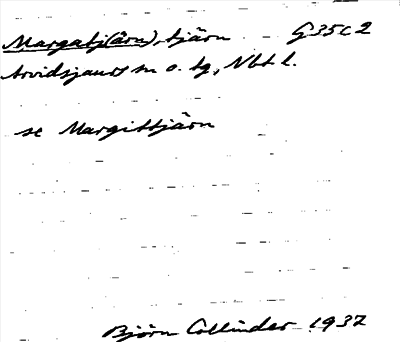 Margatj(ärn), tjärn G35C2
Arvidsjaurs sn o. tg, Nbt l.
se Margittjärn
Björn Collinder 1937